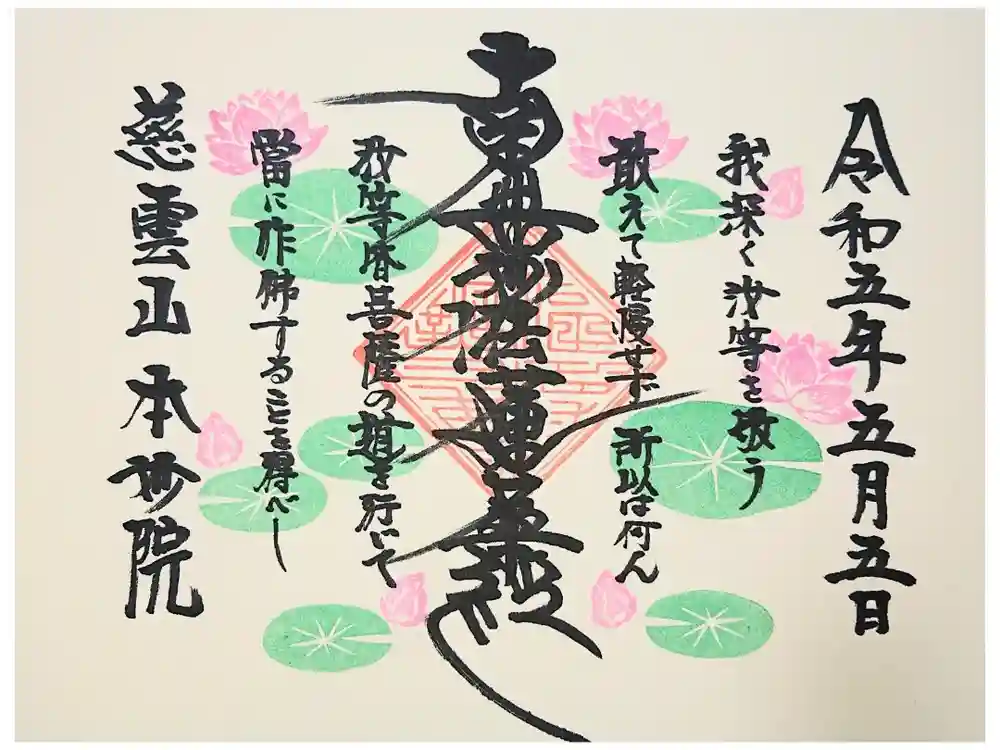 令和五年五月五日
我深く汝等を敬う
敢えて軽慢せず 所以は何ん
南無妙法蓮華経
汝等皆菩薩の道を行いて
當に作佛することを得べし
慈雲山 本妙院